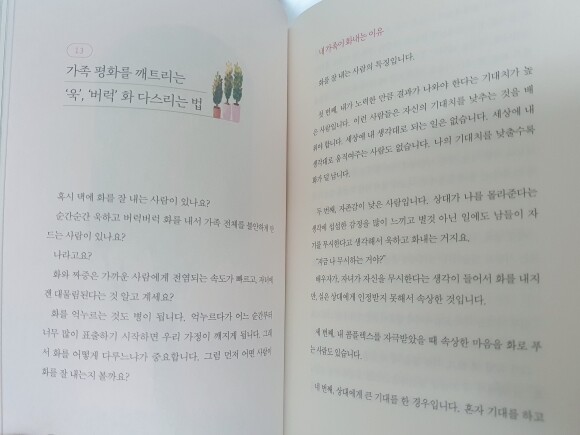 13
가족 평화를 깨트리는
'욱', '버럭' 화 다스리는 법
혹시 댁에 화를 잘 내는 사람이 있나요?
순간순간 욱하고 버럭버럭 화를 내서 가족 전체를 불안하게 만
드는 사람이 있나요?
나라고요?
화와 짜증은 가까운 사람에게 전염되는 속도가 빠르고, 자녀에
겐 대물림된다는 것 알고 계세요?
화를 억누르는 것도 병이 됩니다. 억누르다가 어느 순간부터
너무 많이 표출하기 시작하면 우리 가정이 깨지게 됩니다. 그래
서 화를 어떻게 다루느냐가 중요합니다. 그럼 먼저 어떤 사람이
화를 잘 내는지 볼까요?
내 가족이 화내는 이유
화를 잘 내는 사람의 특징입니다.
첫 번째, 내가 노력한 만큼 결과가 나와야 한다는 기대치가 높
은 사람입니다. 이런 사람들은 자신의 기대치를 낮추는 것을 배
워야 합니다. 세상에 내 생각대로 되는 일은 없습니다. 세상에 내
생각대로 움직여주는 사람도 없습니다. 나의 기대치를 낮출수록
화가 덜 납니다.
두 번째, 자존감이 낮은 사람입니다. 상대가 나를 몰라준다는
생각에 섭섭한 감정을 많이 느끼고 별것 아닌 일에도 남들이 자
기를 무시한다고 생각해서 욱하고 화내는 거지요.
"지금 나 무시하는 거야?"
배우자가, 자녀가 자신을 무시한다는 생각이 들어서 화를 내지
만, 실은 상대에게 인정받지 못해서 속상한 것입니다.
세 번째, 내 콤플렉스를 자극받았을 때 속상한 마음을 화로 푸
는 사람도 있습니다.
네 번째, 상대에게 큰 기대를 한 경우입니다. 혼자 기대를 하고